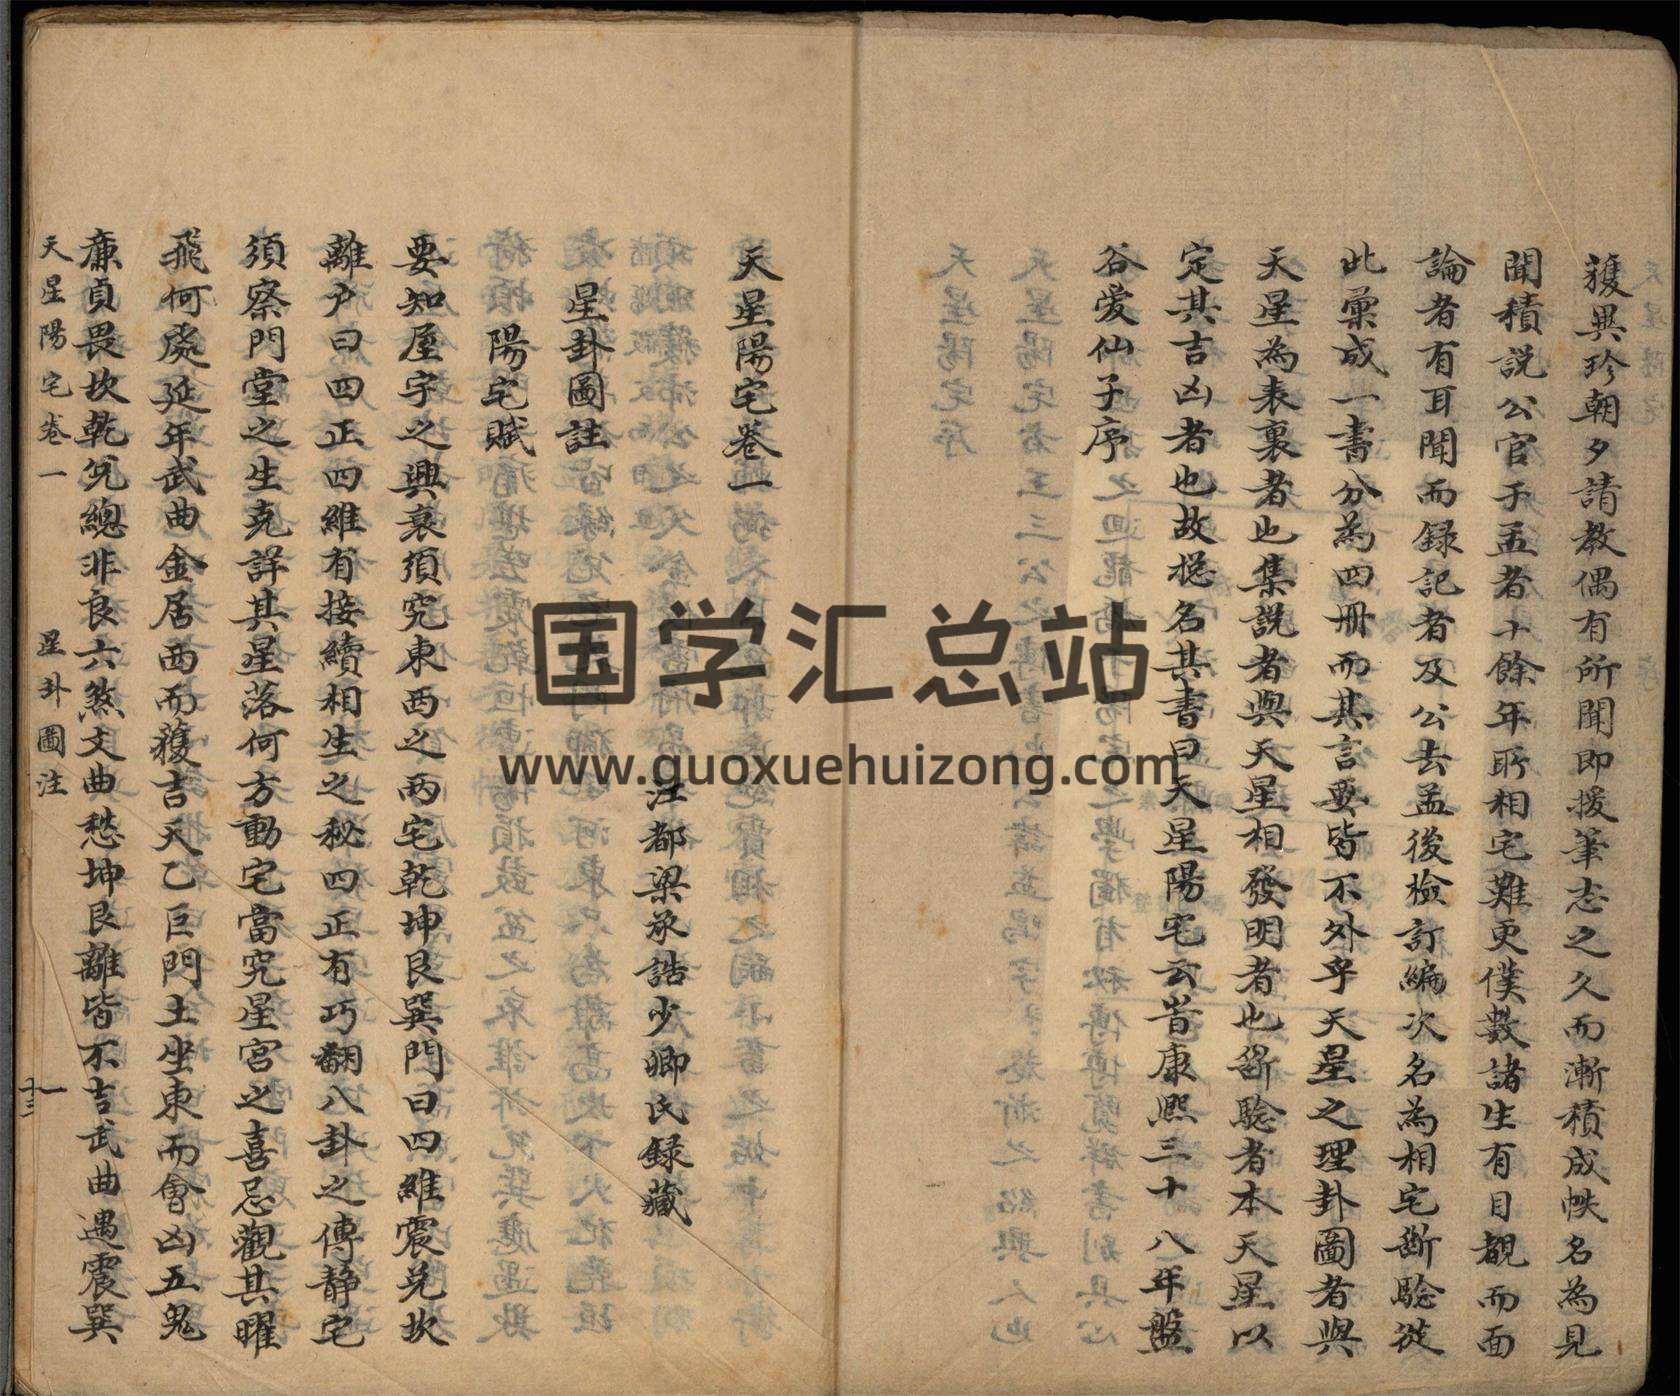 獲異珍朝夕請教偶有所聞即援筆志之久而漸積成帙名為見
聞積説公官于孟者十餘年所相宅難更僕數諸生有目覩而面
論者有耳聞而録記者及公去孟後檢訂編次名為相宅斷騐從
此彙成一書分為四冊而其言要皆不外乎天星之理卦圖者與
天星為表裏者也集説者與天星相發明者也斷騐者本天星以
定其吉凶者也故揔名其書曰天星陽宅云旹康熙三十八年盤
谷愛仙子序
天星陽宅卷一
江都梁承誥少卿氏録藏
星卦圖註
陽宅賦
要知屋宇之興衰須究東西之兩宅乾坤艮巽門曰四維震兑坎
離户曰四正四維有接續相生之秘四正有巧翻八卦之傳静宅
須察門堂之生克詳其星落何方動宅當究星宮之喜忌觀其曜
飛何處延年武曲金居西而獲吉天乙巨門土坐東而會凶五鬼
廉貞畏坎乾兑總非良六煞文曲愁坤艮離皆不吉武曲遇震巽
天星陽宅卷一 星卦圖注
国学汇总站
www.guoxuehuizong.com